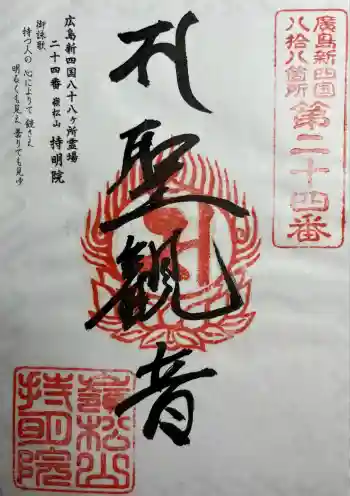 廣島新四国
八拾八箇所
第二十四番
聖観音
広島新四国八十八ヶ所霊場
二十四番 嶺松山 持明院
御詠歌
持つ人の 心によりて 鏡さえ
明るくも見え 曇りても見ゆ
嶺松山
持明院